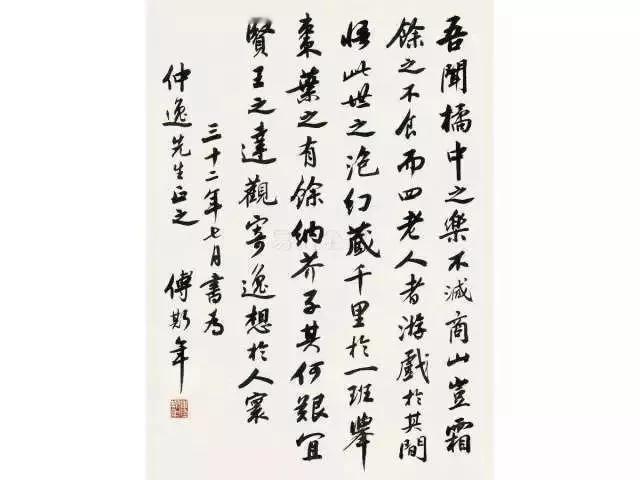 吾聞橘中之樂不減商山豈霜
餘之不食而四老人者游戲於其間
悟此世之泡幻藏千里於一班舉
棗葉之有餘納芥子其何艱宜
賢王之達觀寄逸想於人寰
三十二年七月書為
仲逸先生正之
傅斯年